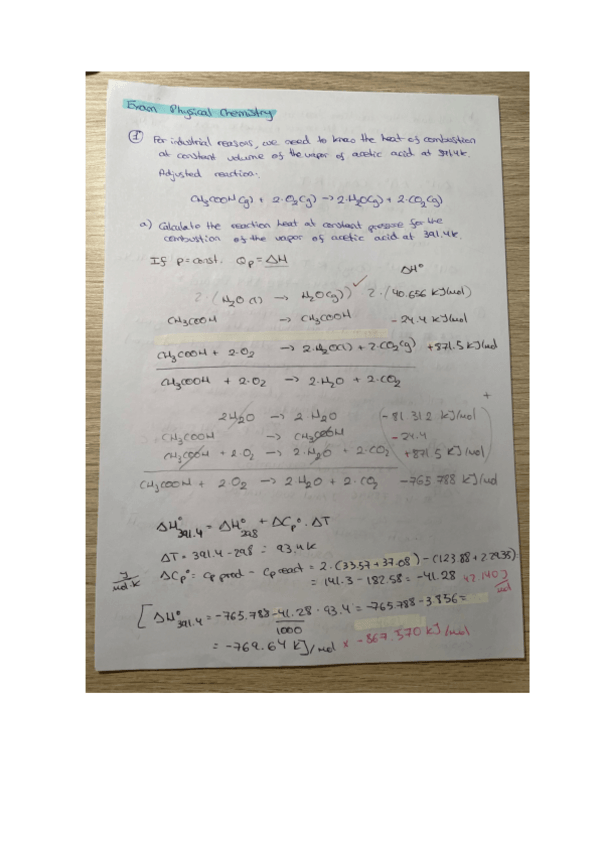 Exam Physical Chemistry
① For industrial reasons, we need to know the heat of combustion
at constant volume of the vapor of acetic acid at 391.4K.
Adjusted reaction:
CH₃COOH(g) + 2·O₂(g) → 2·H₂O(g) + 2·CO₂(g)
a) Calculate the reaction heat at constant pressure for the
combustion of the vapor of acetic acid at 391.4K.
If p=const. Qp = ΔH
ΔH°
2·(H₂O(l) → H₂O(g)) ✓ 2·(40.656 KJ/mol)
CH₃COOH → CH₃COOH -24.4 KJ/mol
CH₃COOH + 2·O₂ → 2·H₂O(l) + 2·CO₂(g) +871.5 KJ/mol
CH₃COOH + 2·O₂ → 2·H₂O + 2·CO₂
+
2H₂O → 2·H₂O -81.312 KJ/mol
CH₃COOH → CH₃COOH -24.4
CH₃COOH + 2·O₂ → 2·H₂O + 2·CO₂ +871.5 KJ/mol
CH₃COOH + 2·O₂ → 2H₂O + 2·CO₂ -765.788 KJ/mol
ΔH°391.4 = ΔH°298 + ΔCp°·ΔT
ΔT = 391.4 - 298 = 93.4K
J/mol·K ΔCp° = Cp prod - Cp react = 2·(33.57+37.08) - (123.88+2·29.35)
= 141.3 - 182.58 = -41.28 47.140 J/mol
[ΔH°391.4 = -765.788 -41.28/1000 · 93.4 = -765.788 - 3.856 =
= -769.64 KJ/mol × -867.570 KJ/mol